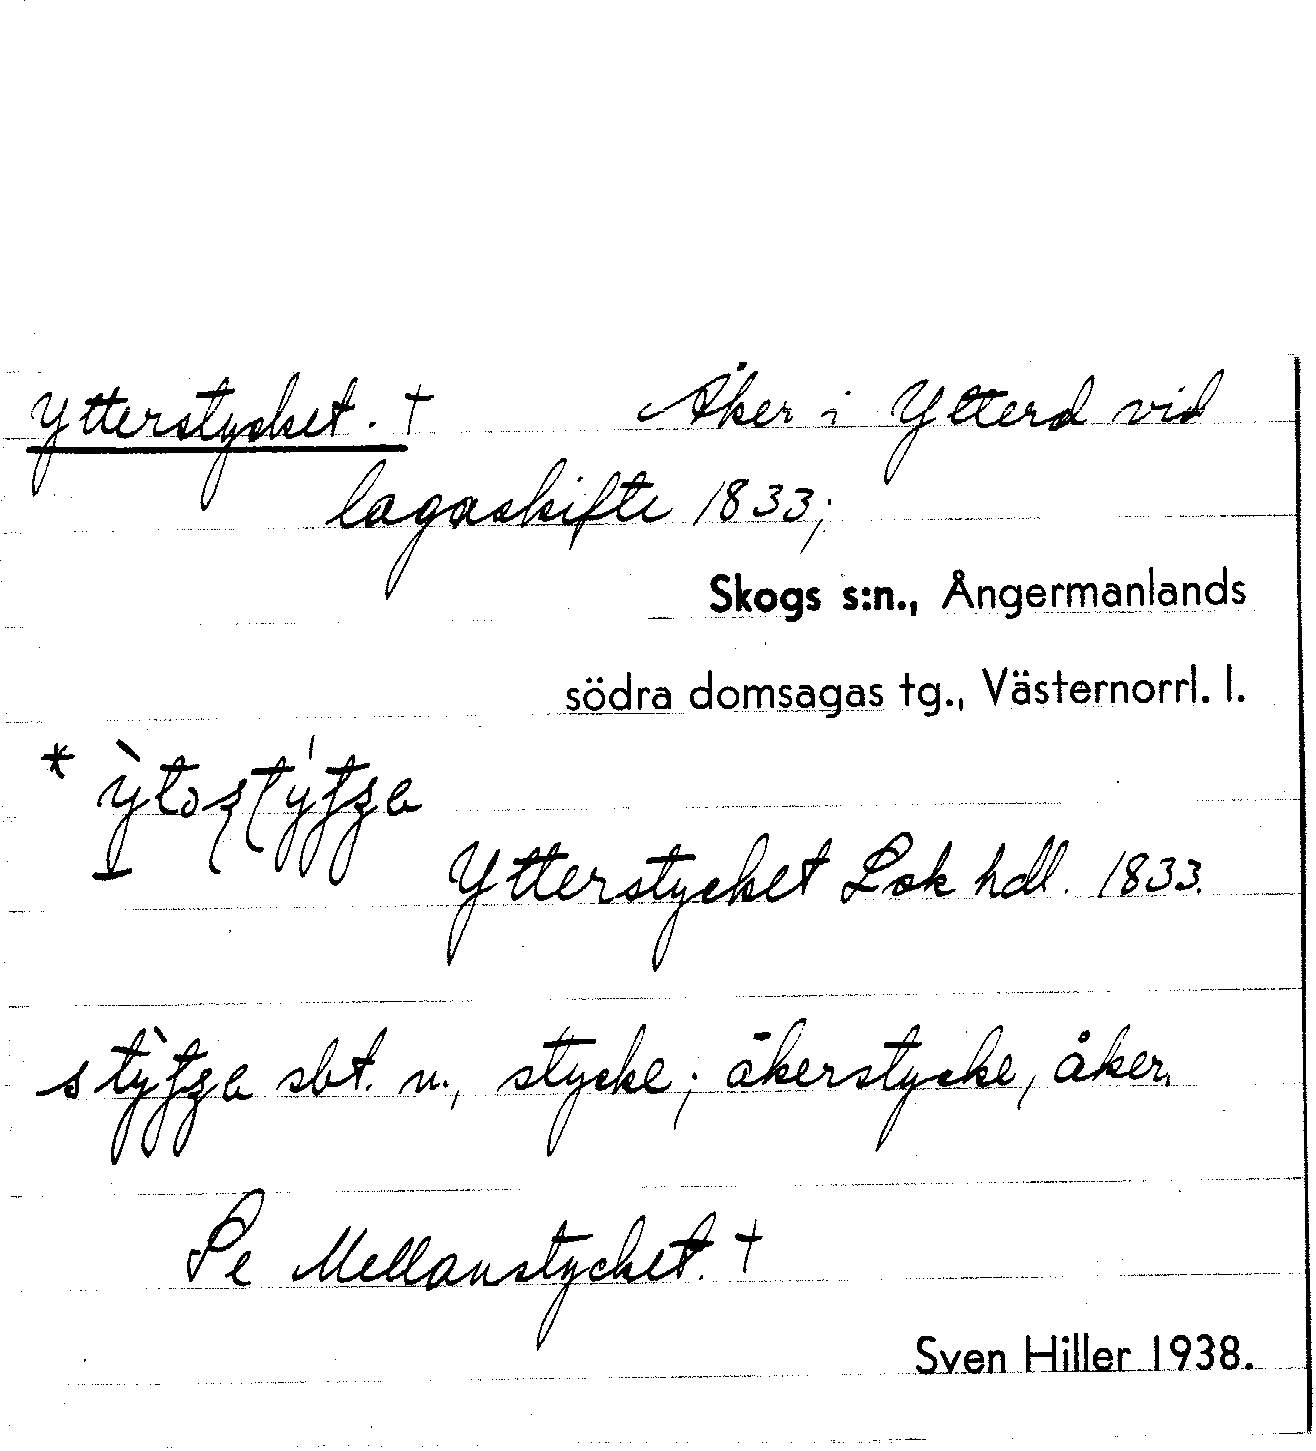 Ytterstycket. † Åker i Ytterå vid
lagaskifte 1833;
Skogs s:n., Ångermanlands
södra domsagas tg., Västernorrl. l.
Ytterstycket Lsk hdl. 1833.
sbt. n., stycke; åkerstycke, åker.
Se Mellanstycket. †
Sven Hiller 1938.